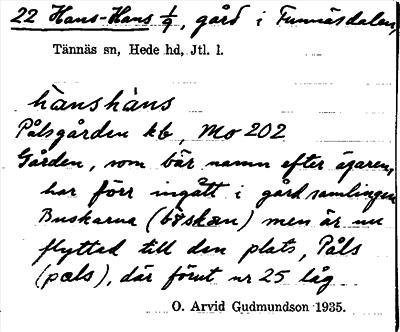 22 Hans-Hans 1/9, gård i Funnäsdalen,
Tännäs sn, Hede hd, Jtl. l.
hànshàns
Pålsgården kb, Mo 202
Gården, som bär namn efter ägaren,
har förr ingått i gårdsamlingen
Buskarna (bɵskæn) men är nu
flyttad till den plats, Påls
(pɑls), där förut nr 25 låg
O. Arvid Gudmundson 1935.